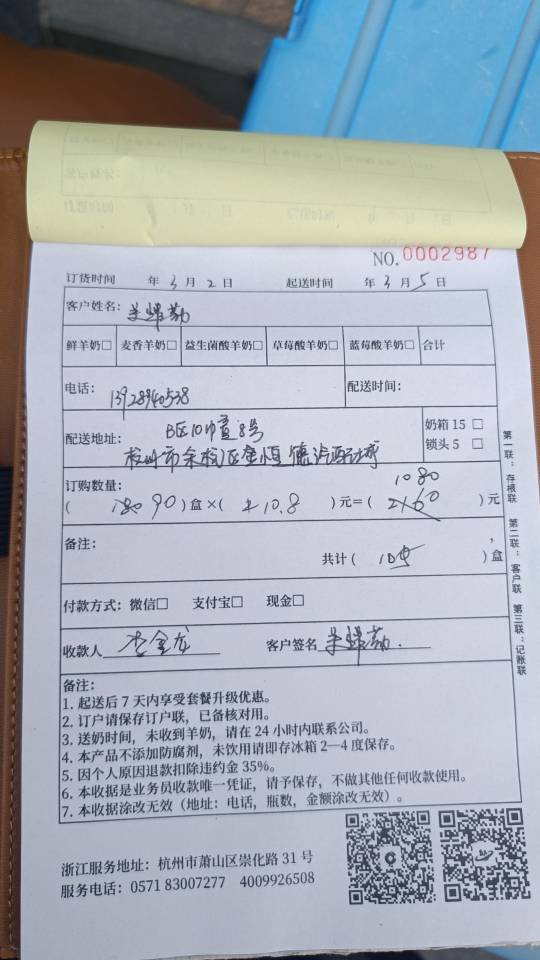 NO. 0002987
订货时间 年 3 月 2 日 起送时间 年 3 月 5 日
客户姓名： 朱 勤
鲜羊奶□ 麦香羊奶□ 益生菌酸羊奶□ 草莓酸羊奶□ 蓝莓酸羊奶□ 合计
电话： 13928940538 配送时间：
B区10幢8号
配送地址： 杭州市余杭区金恒德汽配城
奶箱 15 □
锁头 5 □
订购数量： 1080
( 180 90 ) 盒 ×( 10.8 ) 元＝( 2160 ) 元
备注：
共计( 105 ) 盒
付款方式：微信□ 支付宝□ 现金□
收款人 金龙 客户签名 朱 勤
备注：
1. 起送后 7 天内享受套餐升级优惠。
2. 订户请保存订户联，已备核对用。
3. 送奶时间，未收到羊奶，请在 24 小时内联系公司。
4. 本产品不添加防腐剂，未饮用请即存冰箱 2—4 度保存。
5. 因个人原因退款扣除违约金 35%。
6. 本收据是业务员收款唯一凭证，请予保存，不做其他任何收款使用。
7. 本收据涂改无效（地址：电话，瓶数，金额涂改无效）。
浙江服务地址：杭州市萧山区崇化路 31 号
服务电话：0571 83007277 4009926508
第一联：存根联 第二联：客户联 第三联：记账联